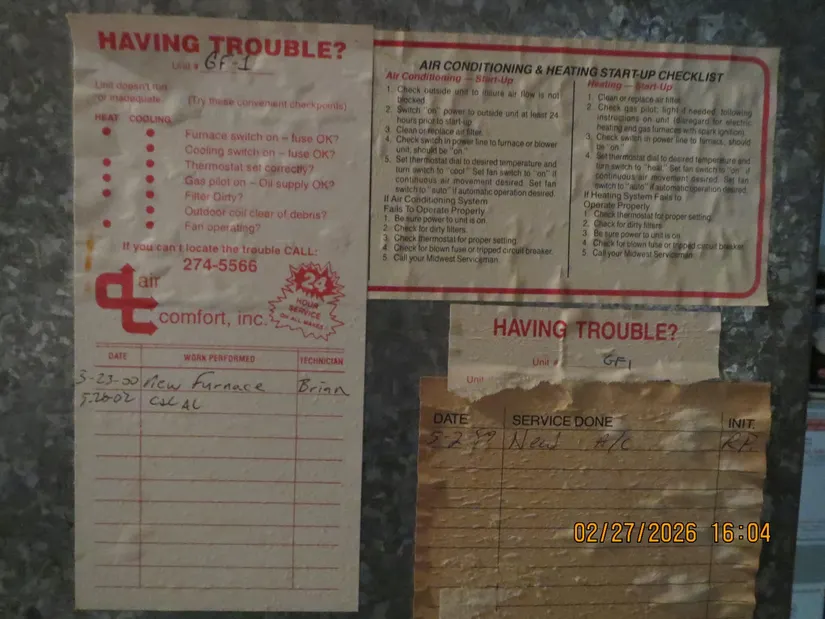 HAVING TROUBLE?
Unit # GF-1
Unit doesn't run
or inadequate
(Try these convenient checkpoints)
HEAT COOLING
Furnace switch on – fuse OK?
Cooling switch on – fuse OK?
Thermostat set correctly?
Gas pilot on – Oil supply OK?
Filter Dirty?
Outdoor coil clear of debris?
Fan operating?
If you can't locate the trouble CALL:
274-5566
air
comfort, inc.
24
HOUR
SERVICE
ON ALL MAKES
DATE WORK PERFORMED TECHNICIAN
3-23-00 New Furnace Brian
5-20-02
AIR CONDITIONING & HEATING START-UP CHECKLIST
Air Conditioning — Start-Up
1. Check outside unit to insure air flow is not
blocked.
2. Switch "on" power to outside unit at least 24
hours prior to start-up.
3. Clean or replace air filter.
4. Check switch in power line to furnace or blower
unit, should be "on."
5. Set thermostat dial to desired temperature and
turn switch to "cool." Set fan switch to "on" if
continuous air movement desired. Set fan
switch to "auto" if automatic operation desired.
If Air Conditioning System
Fails To Operate Properly
1. Be sure power to unit is on.
2. Check for dirty filters.
3. Check thermostat for proper setting.
4. Check for blown fuse or tripped circuit breaker.
5. Call your Midwest Serviceman.
Heating — Start-Up
1. Clean or replace air filter.
2. Check gas pilot; light if needed, following
instructions on unit (disregard for electric
heating and gas furnaces with spark ignition).
3. Check switch in power line to furnace, should
be "on."
4. Set thermostat dial to desired temperature and
turn switch to "heat." Set fan switch to "on" if
continuous air movement desired. Set fan
switch to "auto" if automatic operation desired.
If Heating System Fails to
Operate Properly
1. Check thermostat for proper setting.
2. Check for dirty filters.
3. Be sure power to unit is on.
4. Check for blown fuse or tripped circuit breaker.
5. Call your Midwest Serviceman.
HAVING TROUBLE?
Unit # GF1
Unit
DATE SERVICE DONE INIT.
5-2 New A/C
02/27/2026 16:04